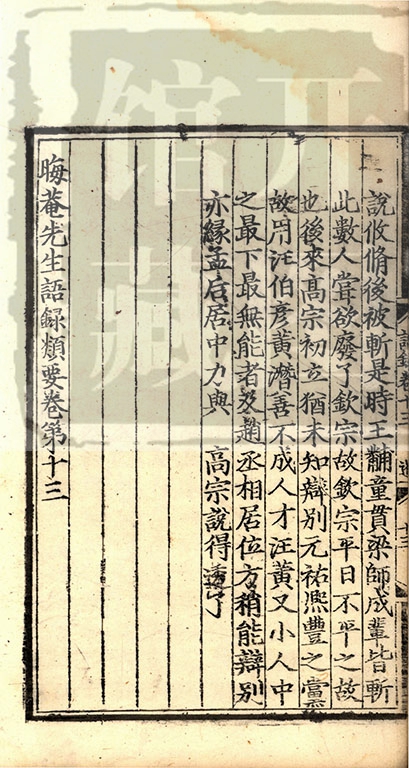 說攸脩後被斬是時王黼童貫梁師成輩皆斬
此數人嘗欲廢了欽宗故欽宗平日不平之故
也後來高宗初立猶未知辯別元祐熈豐之黨
故用汪伯彦黃潛善不成人才汪黃又小人中
之最下最無能者及趙丞相居位方稍能辯別
亦緣孟后居中力與 高宗說得透了
晦菴先生語録類要卷第十三